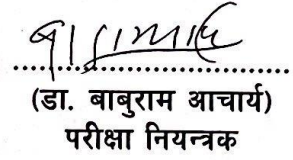 (डा. बाबुराम आचार्य)
परीक्षा नियन्त्रक